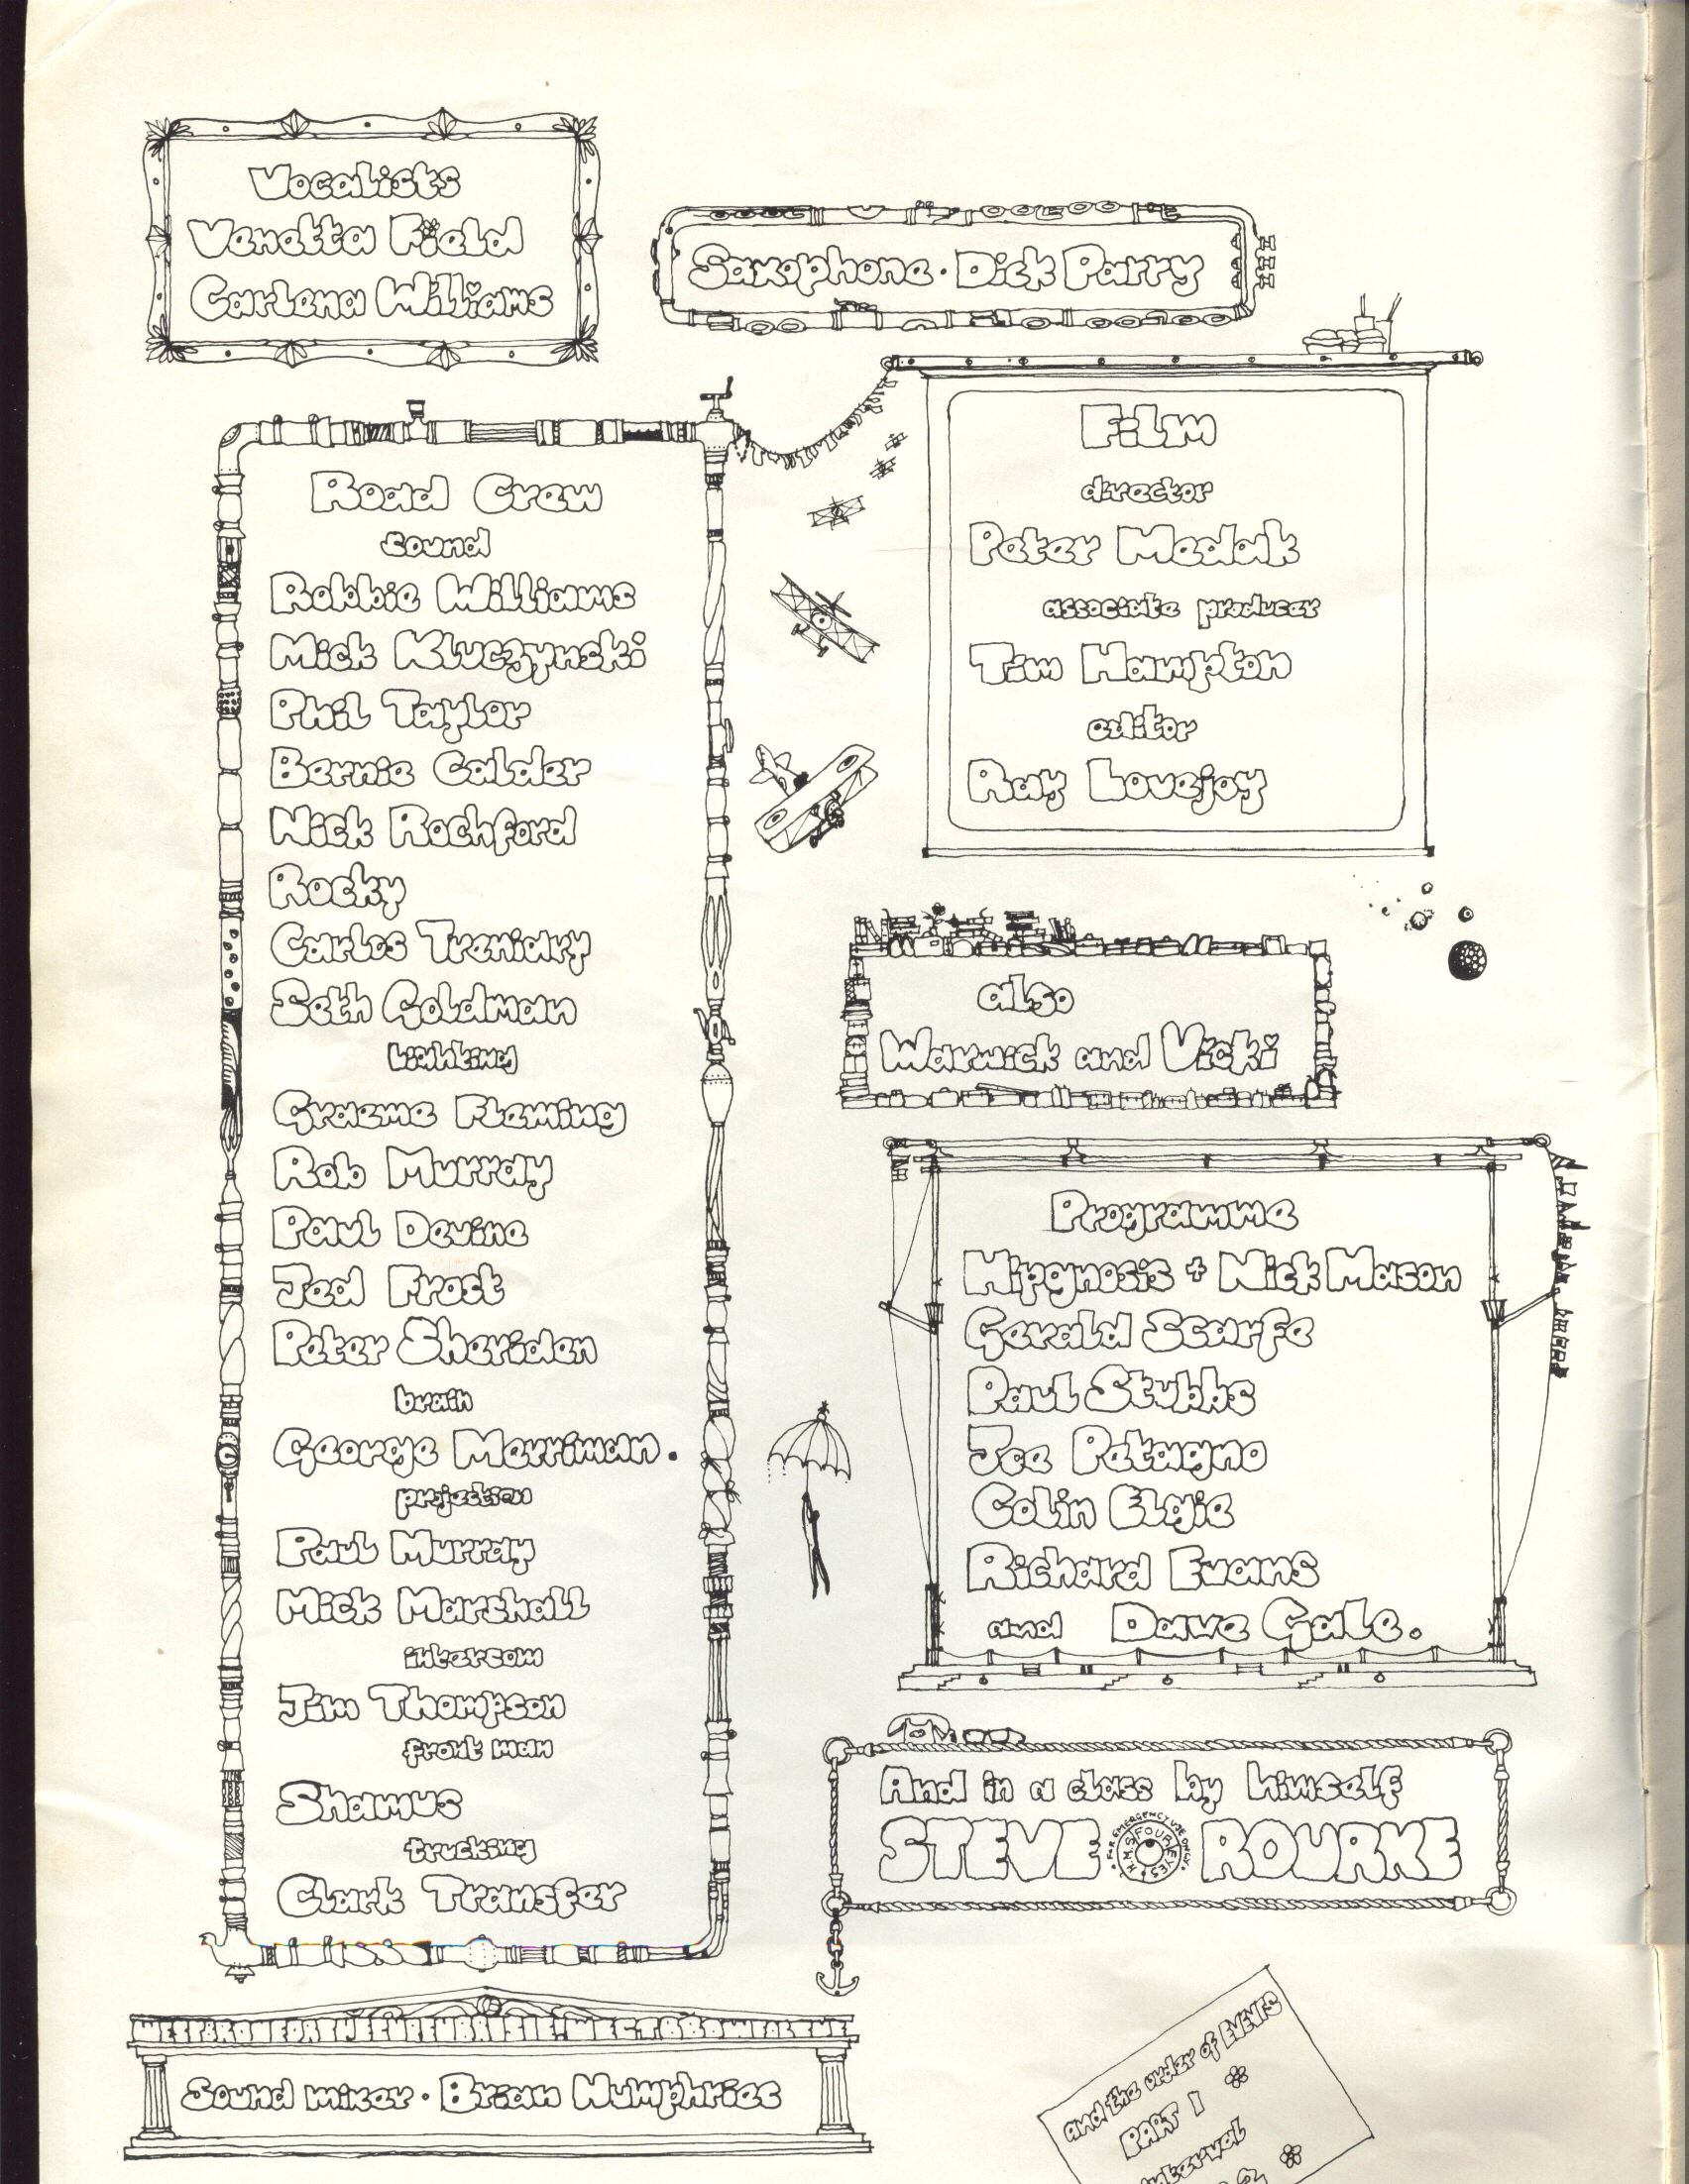 Vocalists
Venetta Field
Carlena Williams
Saxophone · Dick Parry
Road Crew
sound
Robbie Williams
Mick Kluczynski
Phil Taylor
Bernie Calder
Nick Rochford
Rocky
Carlos Treniary
Seth Goldman
Lighting
Graeme Fleming
Rob Murray
Paul Devine
Jed Frost
Peter Sheriden
brain
George Merriman.
projection
Paul Murray
Mick Marshall
intercom
Jim Thompson
front man
Shamus
trucking
Clark Transfer
Sound mixer · Brian Humphries
Film
director
Peter Medak
associate producer
Tim Hampton
editor
Ray Lovejoy
also
Warwick and Vicki
Programme
Hipgnosis + Nick Mason
Gerald Scarfe
Paul Stubbs
Joe Petagno
Colin Elgie
Richard Evans
and Dave Gale.
And in a class by himself
STEVE ROURKE
FOR EMERGENCY USE ONLY
H.M.S. FOUR EYES
and the order of EVENTS
PART 1
interval
2